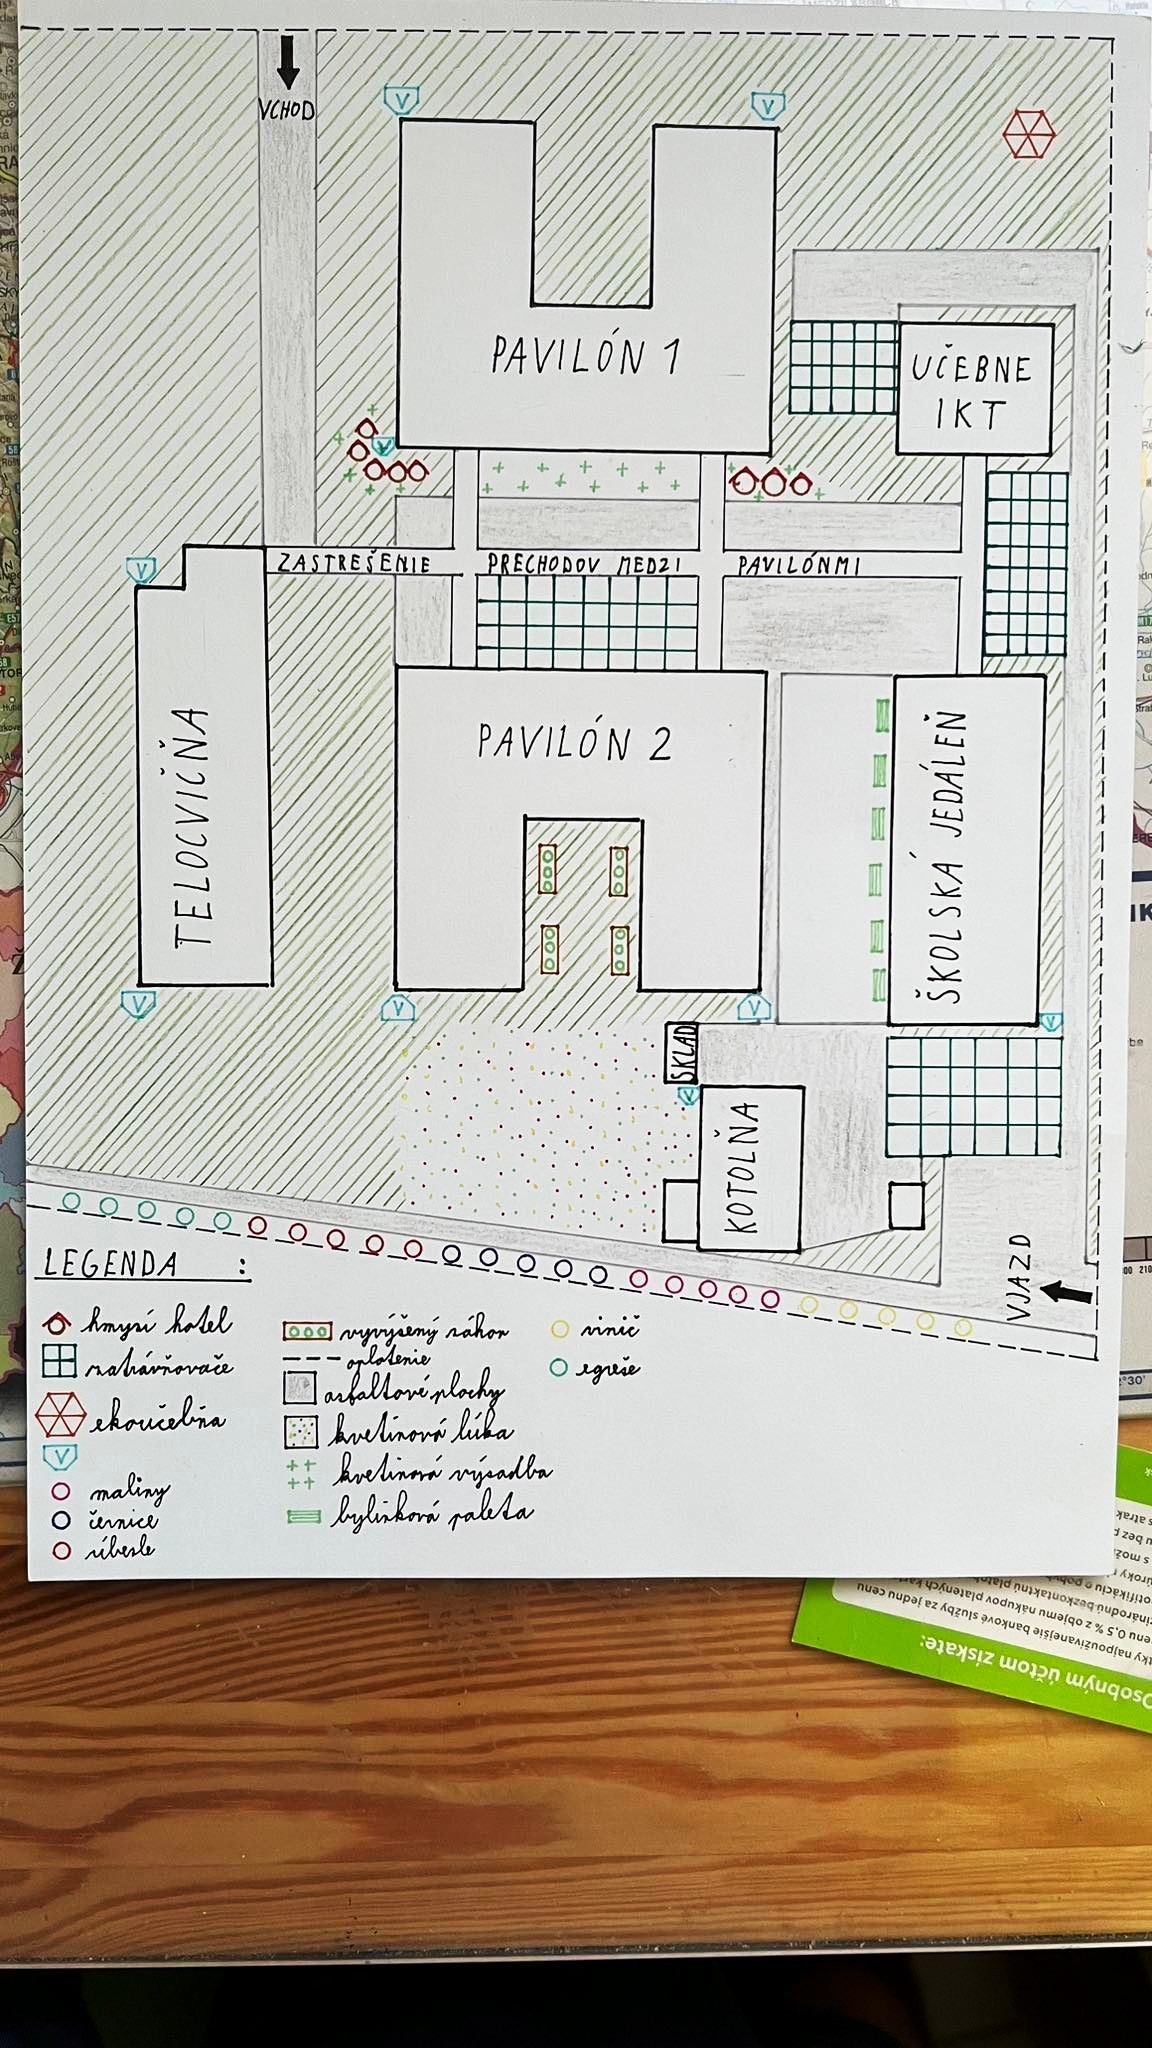 VCHOD
V
V
PAVILÓN 1
UČEBNE
IKT
V
V
ZASTREŠENIE PRECHODOV MEDZI PAVILÓNMI
PAVILÓN 2
TELOCVIČŇA
ŠKOLSKÁ JEDÁLEŇ
V
V
V
V
SKLAD
V
KOTOLŇA
VJAZD
LEGENDA :
hmysí hotel
zatrávňovače
ekoučebňa
V
maliny
černice
ríbezle
vyvýšený záhon
oplotenie
asfaltové plochy
kvetinová lúka
kvetinová výsadba
bylinková paleta
vinič
egreše
Osobným účtom získate:
najpoužívanejšie bankové služby za jednu cenu
0,5 % z objemu nákupov platených